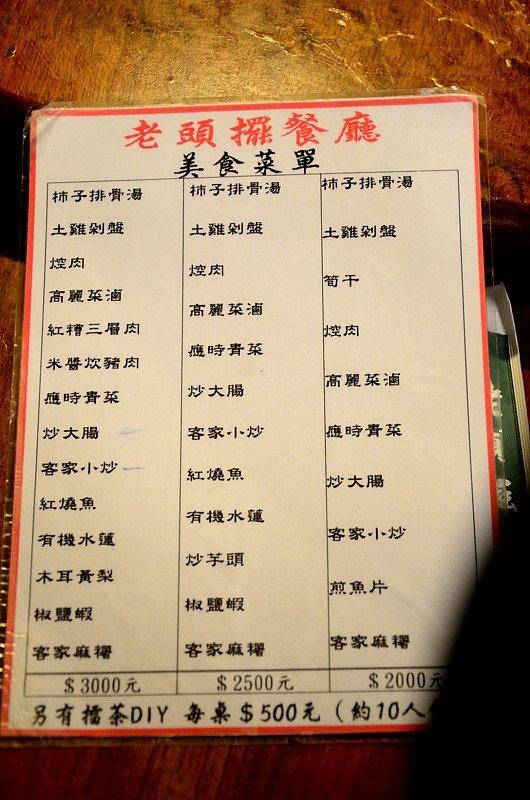 老頭擺餐廳
美食菜單
柿子排骨湯
土雞剁盤
焢肉
高麗菜滷
紅糟三層肉
米醬炊豬肉
應時青菜
炒大腸
客家小炒
紅燒魚
有機水蓮
木耳黃梨
椒鹽蝦
客家麻糬
$3000元
柿子排骨湯
土雞剁盤
焢肉
高麗菜滷
應時青菜
炒大腸
客家小炒
紅燒魚
有機水蓮
炒芋頭
椒鹽蝦
客家麻糬
$2500元
柿子排骨湯
土雞剁盤
筍干
焢肉
高麗菜滷
應時青菜
炒大腸
客家小炒
煎魚片
客家麻糬
$2000元
另有擂茶DIY 每桌$500元(約10人